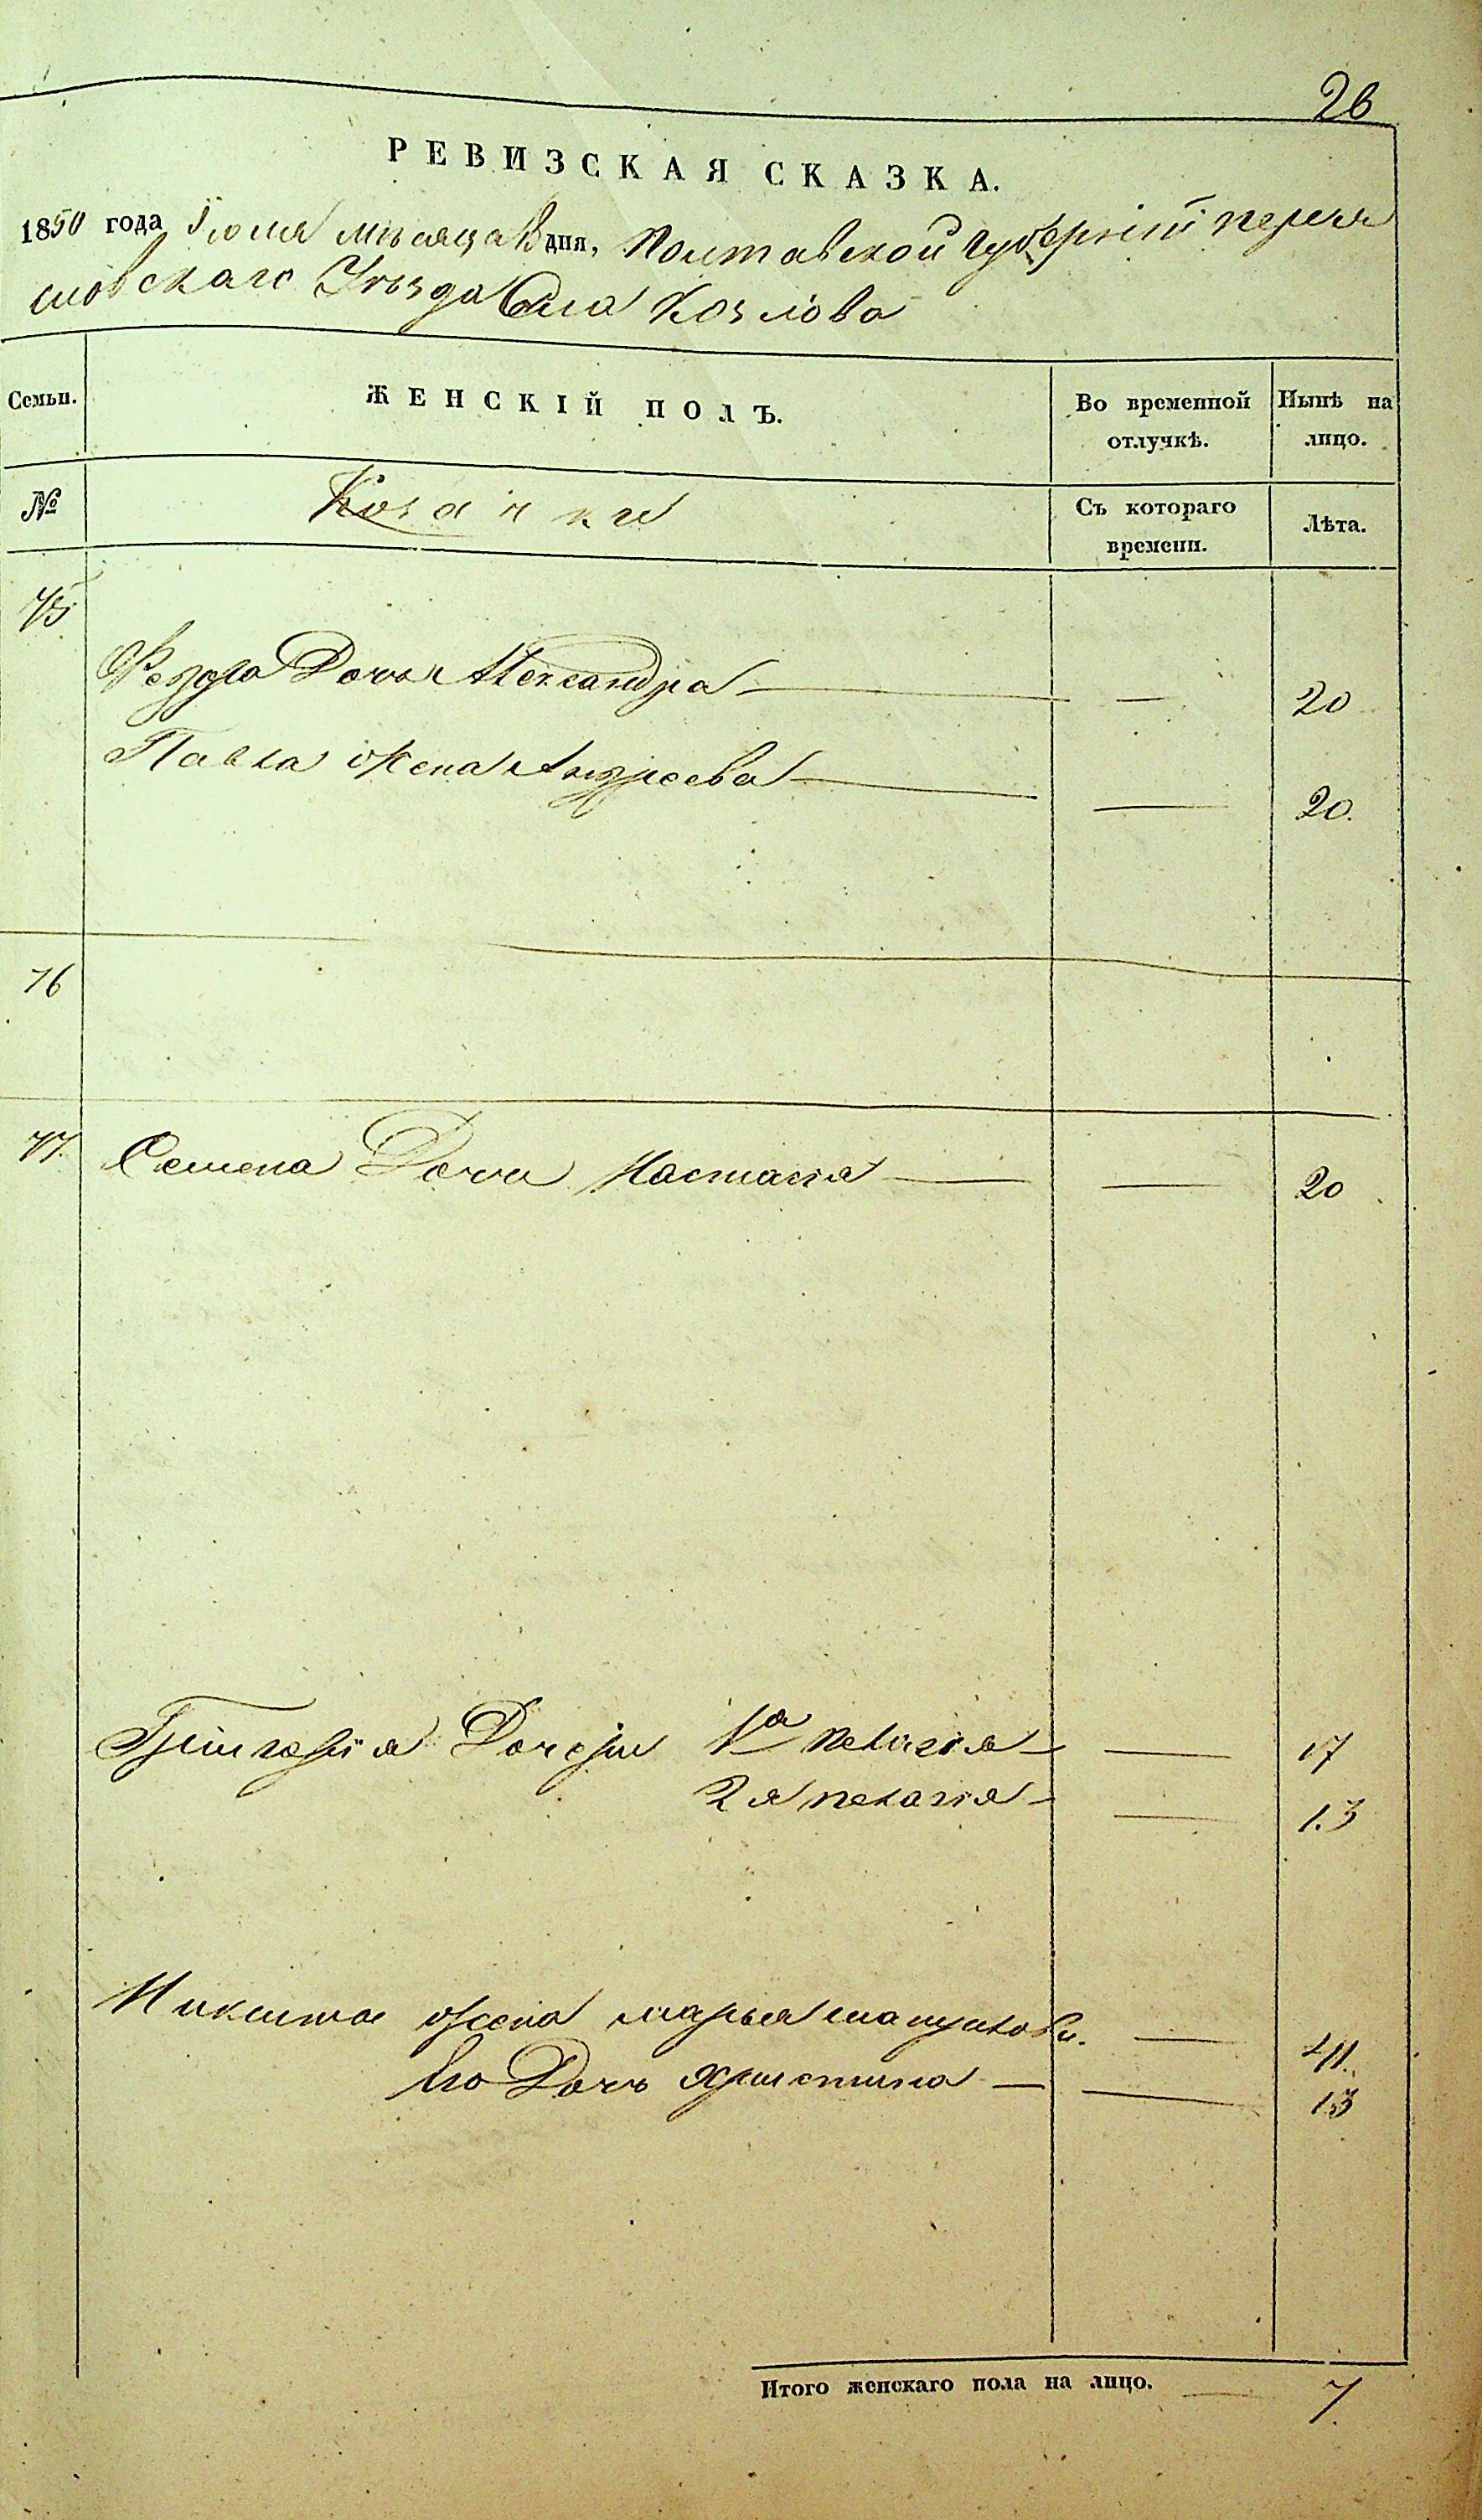 26
РЕВИЗСКАЯ СКАЗКА.
1850 года Іюля мѣсяца дня, Полтавской Губерніи Перея
словскаго Уѣзда Села Козлова
Семьи.
ЖЕНСКІЙ ПОЛЪ.
Во временной отлучкѣ.
Нынѣ на лицо.
№
Козачки
Съ котораго времени.
Лѣта.
75
Федора Дочь Александра — — 20
Павла жена Андреева — — 20.
76
77. Семена Дочь Настасія — — 20
Григорія Дочери 1а Пелагія — — 17
2я Пелагія — — 13
Никиты жена Марья — 41.
Его Дочь Христина — — 13
Итого женскаго пола на лицо. — 7.